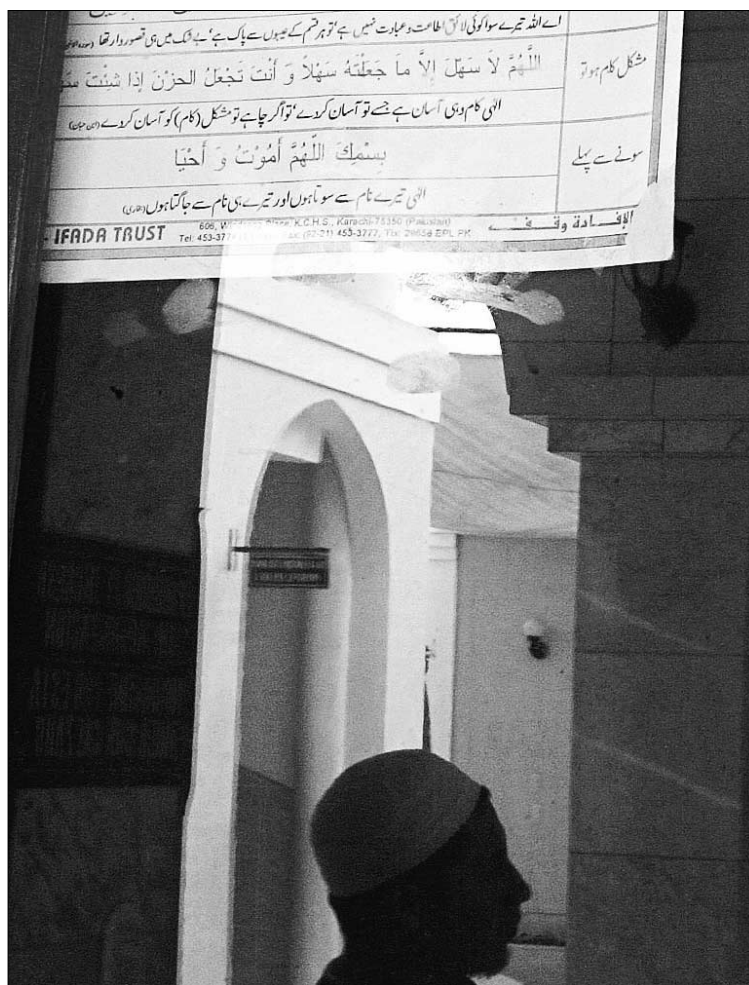 اے اللہ تیرے سوا کوئی لائق اطاعت و عبادت نہیں ہے' تو ہر قسم کے عیبوں سے پاک ہے' بے شک میں ہی قصوردار تھا
مشکل کام ہو تو
اللَّهُمَّ لاَ سَهْلَ اِلاَّ مَا جَعَلْتَهُ سَهْلاً وَ أَنْتَ تَجْعَلُ الحَزْنَ إذَا شِئْتَ
الہی کام وہی آسان ہے جسے تو آسان کردے' تو اگر چاہے تو مشکل (کام) کو آسان کردے (ابن حبان)
سونے سے پہلے
بِسْمِكَ اللَّهُمَّ أَمُوْتُ وَ أَحْيَا
الہی تیرے نام سے سوتا ہوں اور تیرے ہی نام سے جاگتا ہوں (بخاری)
الإفادة وقف
IFADA TRUST
606, K.C.H.S., Karachi-75350 (Pakistan)
Tel: 453-377 (92-21) 453-3777, Tlx: EPL PK